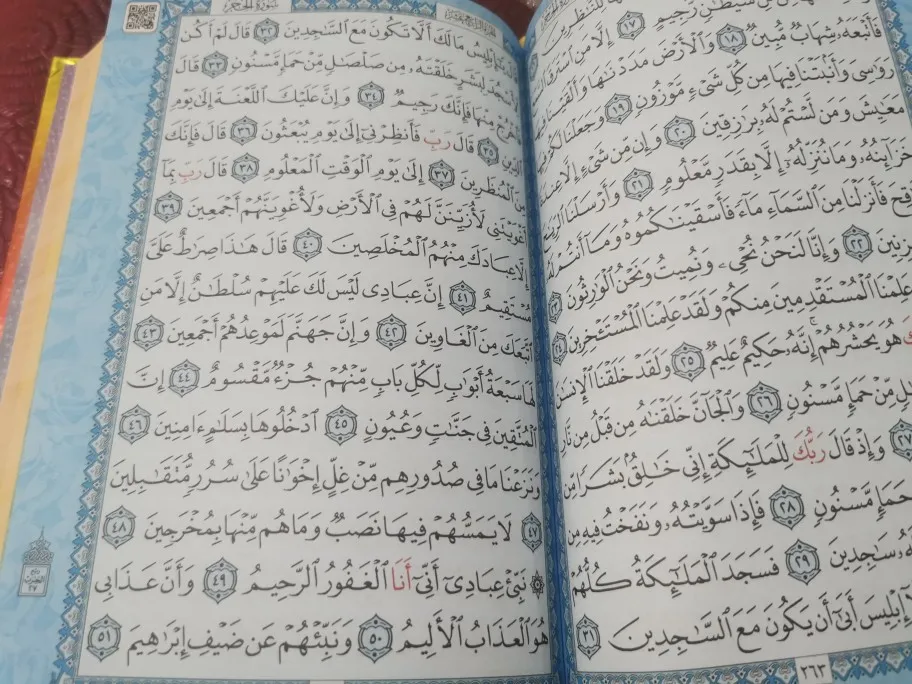 لِلنَّٰظِرِينَ
شَيْطَٰنٍ رَّجِيمٍ ١٧ إِلَّا مَنِ ٱسْتَرَقَ
فَأَتْبَعَهُۥ شِهَابٌ مُّبِينٌ ١٨ وَٱلْأَرْضَ مَدَدْنَٰهَا وَأَلْقَيْنَا فِيهَا
رَوَٰسِيَ وَأَنۢبَتْنَا فِيهَا مِن كُلِّ شَىْءٍ مَّوْزُونٍ ١٩ وَجَعَلْنَا لَكُمْ فِيهَا
مَعَٰيِشَ وَمَن لَّسْتُمْ لَهُۥ بِرَٰزِقِينَ ٢٠ وَإِن مِّن شَىْءٍ إِلَّا عِندَنَا
خَزَآئِنُهُۥ وَمَا نُنَزِّلُهُۥٓ إِلَّا بِقَدَرٍ مَّعْلُومٍ ٢١ وَأَرْسَلْنَا ٱلرِّيَٰحَ
فَأَنزَلْنَا مِنَ ٱلسَّمَآءِ مَآءً فَأَسْقَيْنَٰكُمُوهُ وَمَآ أَنتُمْ لَهُۥ
٢٢ وَإِنَّا لَنَحْنُ نُحْىِۦ وَنُمِيتُ وَنَحْنُ ٱلْوَٰرِثُونَ ٢٣
عَلِمْنَا ٱلْمُسْتَقْدِمِينَ مِنكُمْ وَلَقَدْ عَلِمْنَا ٱلْمُسْتَـْٔخِرِينَ ٢٤
هُوَ يَحْشُرُهُمْ إِنَّهُۥ حَكِيمٌ عَلِيمٌ ٢٥ وَلَقَدْ خَلَقْنَا ٱلْإِنسَٰنَ
مِّنْ حَمَإٍ مَّسْنُونٍ ٢٦ وَٱلْجَآنَّ خَلَقْنَٰهُ مِن قَبْلُ مِن نَّارِ
٢٧ وَإِذْ قَالَ رَبُّكَ لِلْمَلَٰٓئِكَةِ إِنِّى خَٰلِقٌۢ بَشَرًا مِّن
حَمَإٍ مَّسْنُونٍ ٢٨ فَإِذَا سَوَّيْتُهُۥ وَنَفَخْتُ فِيهِ مِن
سَٰجِدِينَ ٢٩ فَسَجَدَ ٱلْمَلَٰٓئِكَةُ كُلُّهُمْ
إِبْلِيسَ أَبَىٰٓ أَن يَكُونَ مَعَ ٱلسَّٰجِدِينَ ٣١
٢٦٣
سُورَةُ الحِجْرِ
قَالَ يَٰٓإِبْلِيسُ مَا لَكَ أَلَّا تَكُونَ مَعَ ٱلسَّٰجِدِينَ ٣٢ قَالَ لَمْ أَكُن
لِّأَسْجُدَ لِبَشَرٍ خَلَقْتَهُۥ مِن صَلْصَٰلٍ مِّنْ حَمَإٍ مَّسْنُونٍ ٣٣ قَالَ
فَٱخْرُجْ مِنْهَا فَإِنَّكَ رَجِيمٌ ٣٤ وَإِنَّ عَلَيْكَ ٱللَّعْنَةَ إِلَىٰ يَوْمِ
ٱلدِّينِ ٣٥ قَالَ رَبِّ فَأَنظِرْنِىٓ إِلَىٰ يَوْمِ يُبْعَثُونَ ٣٦ قَالَ فَإِنَّكَ
مِنَ ٱلْمُنظَرِينَ ٣٧ إِلَىٰ يَوْمِ ٱلْوَقْتِ ٱلْمَعْلُومِ ٣٨ قَالَ رَبِّ بِمَآ
أَغْوَيْتَنِى لَأُزَيِّنَنَّ لَهُمْ فِى ٱلْأَرْضِ وَلَأُغْوِيَنَّهُمْ أَجْمَعِينَ ٣٩
إِلَّا عِبَادَكَ مِنْهُمُ ٱلْمُخْلَصِينَ ٤٠ قَالَ هَٰذَا صِرَٰطٌ عَلَىَّ
مُسْتَقِيمٌ ٤١ إِنَّ عِبَادِى لَيْسَ لَكَ عَلَيْهِمْ سُلْطَٰنٌ إِلَّا مَنِ
ٱتَّبَعَكَ مِنَ ٱلْغَاوِينَ ٤٢ وَإِنَّ جَهَنَّمَ لَمَوْعِدُهُمْ أَجْمَعِينَ ٤٣
لَهَا سَبْعَةُ أَبْوَٰبٍ لِّكُلِّ بَابٍ مِّنْهُمْ جُزْءٌ مَّقْسُومٌ ٤٤ إِنَّ
ٱلْمُتَّقِينَ فِى جَنَّٰتٍ وَعُيُونٍ ٤٥ ٱدْخُلُوهَا بِسَلَٰمٍ ءَامِنِينَ ٤٦
وَنَزَعْنَا مَا فِى صُدُورِهِم مِّنْ غِلٍّ إِخْوَٰنًا عَلَىٰ سُرُرٍ مُّتَقَٰبِلِينَ
٤٧ لَا يَمَسُّهُمْ فِيهَا نَصَبٌ وَمَا هُم مِّنْهَا بِمُخْرَجِينَ ٤٨
۞ نَبِّئْ عِبَادِىٓ أَنِّىٓ أَنَا ٱلْغَفُورُ ٱلرَّحِيمُ ٤٩ وَأَنَّ عَذَابِى
هُوَ ٱلْعَذَابُ ٱلْأَلِيمُ ٥٠ وَنَبِّئْهُمْ عَن ضَيْفِ إِبْرَٰهِيمَ ٥١